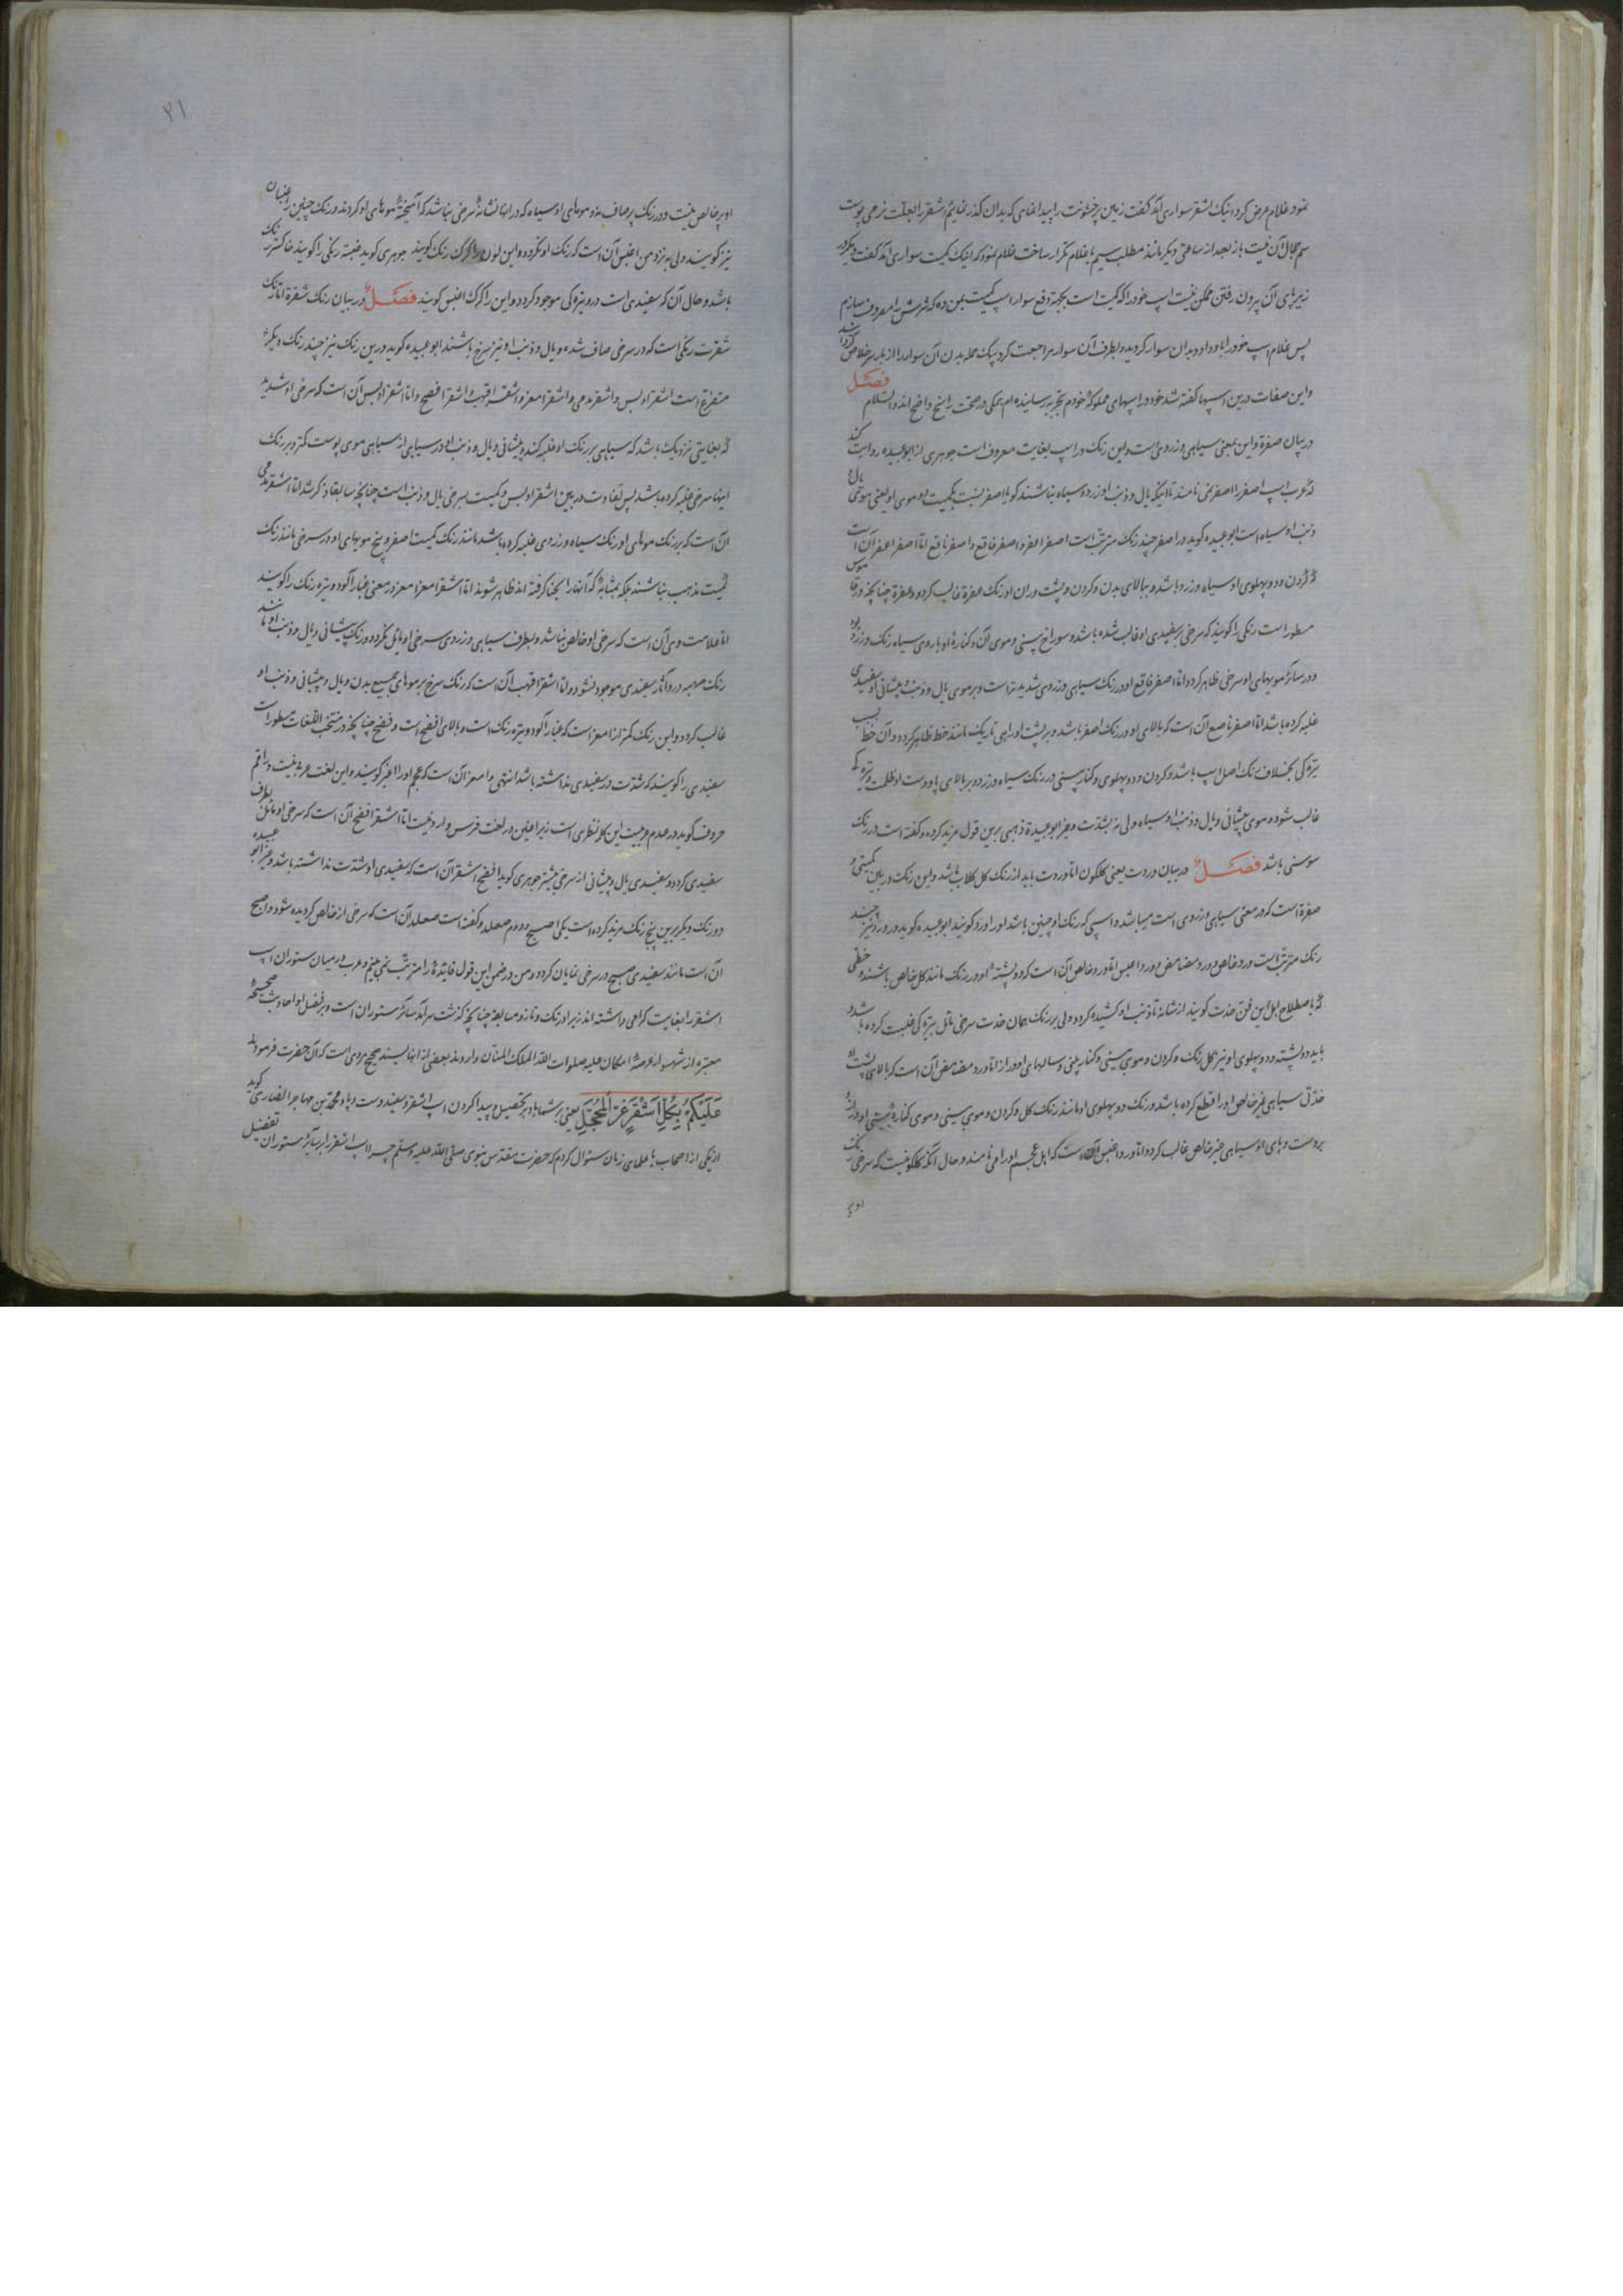 نمود غلام عرض کرد اینک اشقر سواری آمد گفت زمین پر خشونت را پیدا نمای که بدان گذر نمائیم اشقر را بعلت نرمی پوست
سم مجال آن نیست باز بعد از ساعتی دیگر مانند مطلب سیم با غلام تکرار ساخت غلام نمود که اینک کمیت سواری آمد گفت دیگر در
زیر پای آن بیرون رفتن ممکن نیست اسپ خود را که کمیت است بجهة دفع سوار اسپ کمیت بمن ده که شرش را معروف سازم
پس غلام اسپ خود را باو داد و بدان سوار گردید و بطرف آن سوار مراجعت کرد بیک حمله بدن آن سوار را از بار سر خلاص گردانید
واین صفات درین اسپها گفته شد خود در اسپهای مملوکهٔ خودم بتجربه رسانیده ام همگی در صحت راسخ و واضح اند والسلام فصل
در بیان صفرة واین بمعنی سیاهی و زردی است واین رنک در اسپ بغایت معروف است جوهری از ابو عبیده روایت کند
که عرب اسپ اصفر را اصفر نمی نامند تا اینکه یال و ذنب او زرده سیاه نباشند گویا اصفر نسبت بکمیت دو موی او یعنی موی یال و
ذنب او سیاه است ابو عبیده گوید در اصفر چند رنک مترتب است اصفر اعفر و اصفر فاقع و اصفر ناصع اما اصفر اعفر آن است
که گردن و دو پهلوی او سیاه و زرد باشد و ببالای بدن و گردن و پشت و ران او رنک عفرة غالب گردد و عفرة چنانچه در قاموس
مسطور است رنکی را گویند که سرخی بر سفیدی او غالب شده باشد و سوراخ بینی و موی آن و کنارهٔ او با روی سیاه رنک و زرد بود
و در سائر مویهای او سرخی ظاهر گردد و اما اصفر فاقع او در رنک سیاهی و زردی شدید تر است و بر موی یال و ذنب و پیشانی او سفیدی
غلبه کرده باشد اما اصفر ناصع آن است که بالای او در رنک اصفر باشد و بر پشت او راهی تاریک مانند خط ظاهر گردد و آن خط
تیرگی بخلاف رنک اصل اسپ باشد و گردن و دو پهلوی و کنار بینی در رنک سیاه و زرد و بر بالای پا و دست او ظلمت و تیرگی
غالب شود و موی پیشانی و یال و ذنب او سیاه ولی نه بشدت و غیر ابو عبیدة ذهبی برین قول مزید کرده و گفته است در رنک
سوسنی باشد فصل در بیان وردت یعنی گلگون اما وردت باید از رنک گل گلاب باشد و این رنک در بین کمیتی و
صفرة است که در معنی سیاهی و زردی است میباشد و اسپی که رنک او چنین باشد او را ورد گویند ابو عبیده گوید در ورد نیز چند
رنک مترتب است ورد خالص و ورد مضامض و ورد اغبس اما ورد خالص آن است که دو پشتهٔ او در رنک مانند گل خالص باشند و خطی
که باصطلاح اهل این فن جدت گویند از شانه تا ذنب او کشیده گردد ولی بر رنک همان جدت سرخی مائل بتیرگی غلبیت کرده باشد و
باید دو پشته و دو پهلوی او نیز گل رنک و گردن و موی بینی و کنار بینی و ساقهای او در از اما ورد مضامض آن است که بالای پشت او
جدتی سیاهی غیر خالص او را قطع کرده باشد و رنک دو پهلوی او مانند رنک گل و گردن و موی بینی و موی کنارهٔ بینی او دراز و
بر دست و پای او سیاهی غیر خالص غالب گردد اما ورد اغبس آن است که اهل عجم او را می نامند و حال آنکه گلگون نیست که سرخی رنک
او بر
۲۱
او پر خالص نیست و در رنک پر صاف نه و موهای او سیاه که در انها نشانهٔ سرخی نباشد که آمیختهٔ موهای او گردند و رنک چنین را غبسان
نیز گویند ولی به نزد من اغبس آن است که رنک او نگردد و این لون را گرگ رنک گویند جوهری گوید غبسة رنکی را گویند خاکستر رنک
باشد و حال آن که سفیدی است درو تیرگی موجود گردد و این را گرگ اغبس گویند فصل در بیان رنک شقرة اما رنک
شقرت رنکی است که در سرخی صاف شده و یال و ذنب او نیز سرخ باشند ابو عبیده گوید درین رنک نیز چند رنک دیگر
متفرع است اشقر ادبس و اشقر مدمی و اشقر امعز و اشقر اقهب و اشقر افضح و اما اشقر ادبس آن است که سرخی او شدید
که بغایتی نزدیک باشد که سیاهی بر رنک او غلبه کند و پیشانی و یال و ذنب او در سیاهی از سیاهی موی پوست کمتر و بر رنک
اینها سرخی غلبه کرده باشد پس تفاوت در بین اشقر ادبس و کمیت بسرخی یال و ذنب است چنانچه سابقا ذکر شد اما اشقر مدمی
آن است که بر رنک موهای او رنک سیاه و زردی غلبه کرده باشد مانند رنک کمیت اصفر و بیخ مویهای او در سرخی مانند رنک
کمیت مذهب نباشند بلکه بمثابهٔ که آنها را بحنا گرفته اند ظاهر شوند اما اشقر امعز امعز در معنی غبار آلود و تیره رنک را گویند
اما علامت وی آن است که سرخی او خالص نباشد و بطرف سیاهی و زردی سرخی او مائل نگردد و رنک پیشانی و یال و ذنب او مانند
رنک صهبه در و آثار سفیدی موجود نشود و اما اشقر اقهب آن است که رنک سرخ بر موهای جمیع بدن و یال و پیشانی و ذنب او
غالب گردد و این رنک کمتر از امعز است که غبار آلود و تیره رنک است و بالای افضح است و فضح چنانچه در منتخب اللغات مسطور است
سفیدی را گویند که شدت در سفیدی نداشته باشد انتهی و امعز آن است که عجم او را اغبر گویند و این لغت عربی نیست و راقم
حروف گوید در عدم عربیت این کلمه نظری است زیرا غین در لغت فرس وارد نیست اما اشقر افضح آن است که سرخی او مائل بطرف
سفیدی گردد و سفیدی یال و پیشانی از سرخی بیشتر جوهری گوید افضح اشقر آن است که سفیدی او شدت نداشته باشد و غیر ابو عبیده
دو رنک دیگر برین پنج رنک مزید کرده است یکی اصبح و دوم صعلد و گفته است صعلد آن است که سرخی از خالص گردیده شود و اصبح
آن است مانند سفیدی صبح در سرخی نمایان گردد و من در ضمن این قول فایدهٔ را مترتب نمی بینم و عرب در میان ستوران اسپ
اشقر را بغایت گرامی داشته اند زیرا در تک و تاز و مسابقة چنانچه گذشت سرآمد سائر ستوران است و بر فضل او احادیث صحیحهٔ
معتبره از شهسوار عرصهٔ امکان علیه صلوات الله الملک المنان وارد ند بعضی از انها بسند صحیح مروی است که آن حضرت فرمودند
عَلَیْکُمْ بِکُلِّ اَشْقَرٍ غَرَّ الْمُحَجَّلِ یعنی بر شما باد بتحصیل و پیدا کردن اسپ اشقر و سفید دست و پا و محمد بن مهاجر انصاری گوید
از یکی از اصحاب یا علمای زمان سئوال کردم که حضرت مقدس نبوی صلی الله علیه وسلم چرا اسپ اشقر را بر سائر ستوران تفضیل